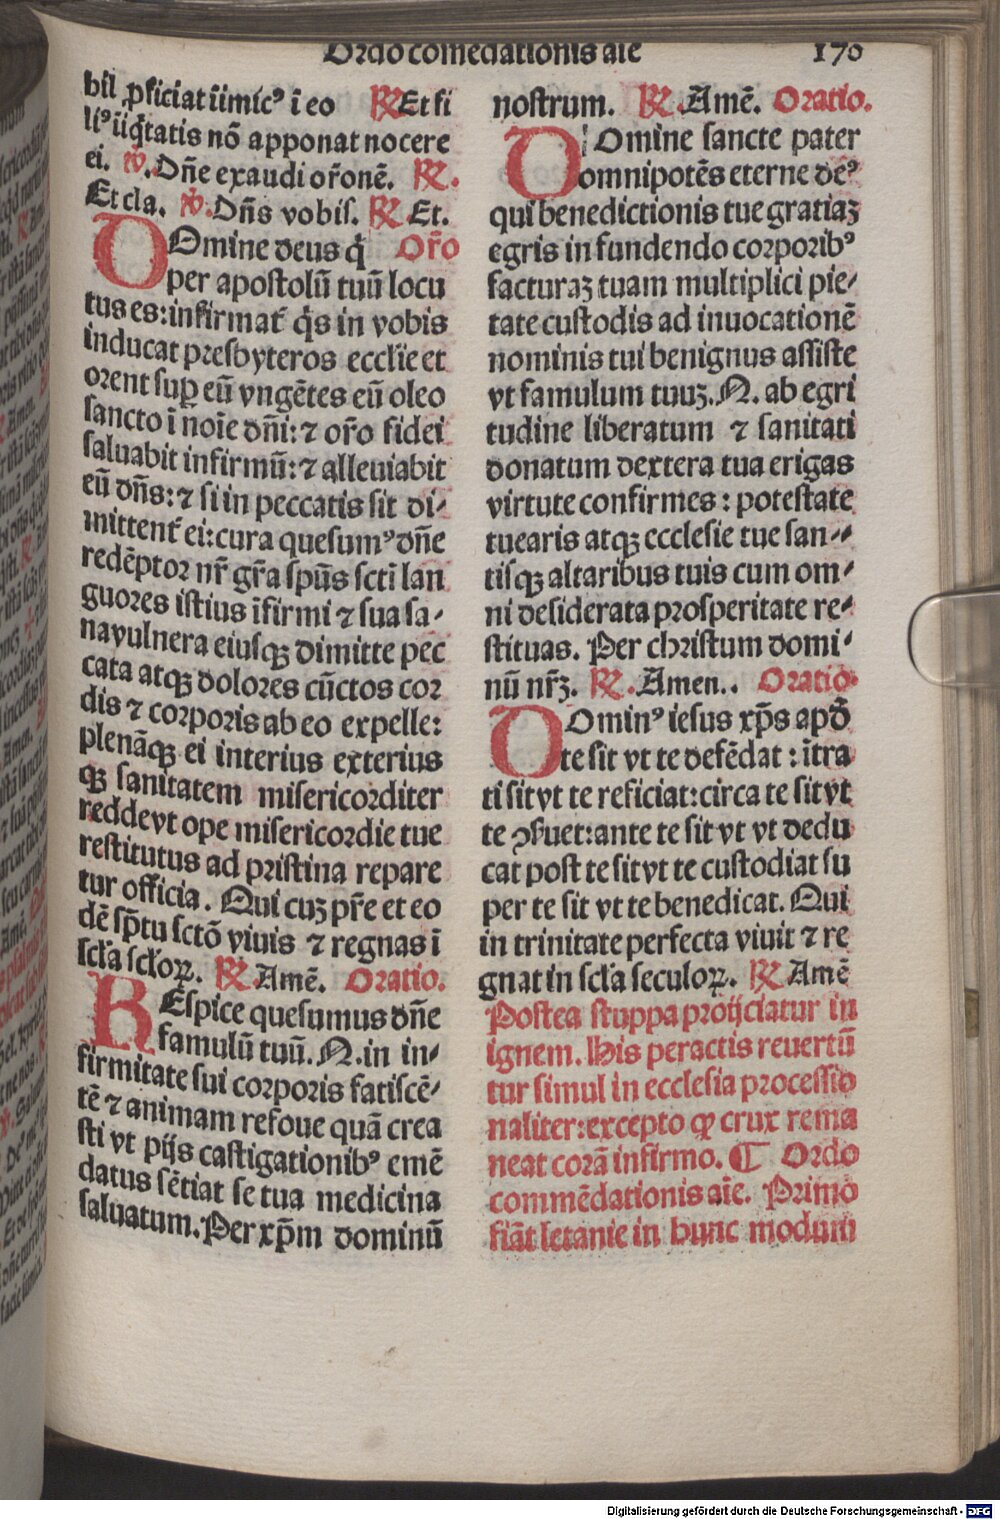 Ordo comēdationis aīe 170
bil ꝓficiat iimicꝰ ī eo ℟ Et fi
liꝰ iiq̄tatis nō apponat nocere
ei. ℣. Dn̄e exaudi or̄onē. ℟.
Et cla. ℣. Dn̄s vobiſ. ℟ Et.
DOmine deus q̄ Or̄o
per apoſtolū tuū locu
tus es: infirmat̄ q̄s in vobis
inducat presbyteros eccl̄ie et
orent ſuꝑ eū vngētes eū oleo
ſancto ī noīe dn̄i: ⁊ or̄o fidei
ſaluabit infirmū: ⁊ alleuiabit
eū dn̄s: ⁊ ſi in peccatis ſit di⸗
mittent̄ ei: cura queſumꝰ dn̄e
redēptor nr̄ gr̄a ſpūs ſcti lan
guores iſtius īfirmi ⁊ sua ſa⸗
na vulnera eiuſqꝫ dimitte pec
cata atqꝫ dolores cūctos cor
dis ⁊ corporis ab eo expelle:
plenāqꝫ ei interius exterius
qꝫ ſanitatem miſericorditer
redde vt ope miſericordie tue
reſtitutus ad priſtina repare
tur officia. Qui cuꝫ pr̄e et eo
dē ſp̄tu ſctō viuis ⁊ regnas ī
ſcl̄a ſcl̄oꝝ. ℟ Amē. Oratio.
REſpice queſumus dn̄e
famulū tuū. N. in in⸗
firmitate ſui corporis fatiſcē⸗
tē ⁊ animam refoue quā crea
ſti vt pijs caſtigationibꝰ emē
datus ſētiat ſe tua medicina
ſaluatum. Per xp̄m dominū
nostrum. ℟. Amē. Oratio.
DOmine ſancte pater
omnipotēs eterne deꝰ
qui benedictionis tue gratiaꝫ
egris infundendo corporibꝰ
facturaꝫ tuam multiplici pie⸗
tate cuſtodis ad inuocationē
nominis tui benignus aſſiſte
vt famulum tuuꝫ. N. ab egri
tudine liberatum ⁊ ſanitati
donatum dextera tua erigas
virtute confirmes: poteſtate
tuearis atqꝫ eccleſie tue ſan⸗
tiſqꝫ altaribus tuis cum om⸗
ni deſiderata proſperitate re⸗
ſtituas. Per chriſtum domi⸗
nū nr̄ꝫ. ℟. Amen.. Oratio.
DOminꝰ ieſus xp̄s apđ
te ſit vt te defēdat: ītra
ti ſit vt te reficiat: circa te ſit vt
te ꝯſuet: ante te ſit vt vt dedu
cat poſt te ſit vt te cuſtodiat ſu
per te ſit vt te benedicat. Qui
in trinitate perfecta viuit ⁊ re
gnat in ſcl̄a ſeculoꝝ. ℟ Amē
Poſtea ſtuppa proijciatur in
ignem. His peractis reuertū
tur ſimul in eccleſia proceſſio
naliter: excepto ꝙ crux rema
neat corā infirmo. ¶ Ordo
commēdationis aīe. Primo
fiāt letanie in hunc modum
Digitalisierung gefördert durch die Deutsche Forschungsgemeinschaft - DFG